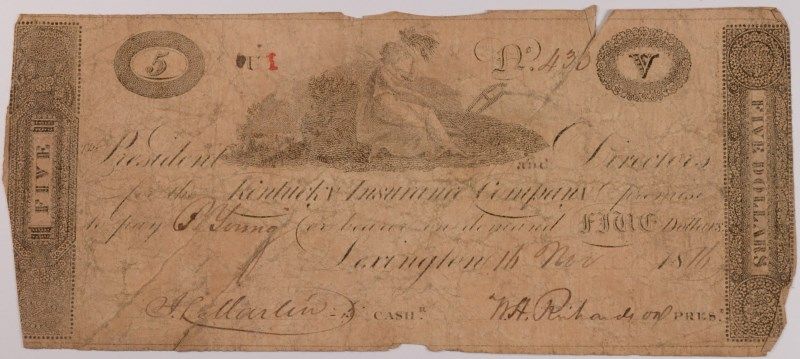 5 No. 430 V
FIVE
the President and Directors
for the Kentucky Insurance Company promise
to pay P. Young or bearer on demand FIVE Dollars
Lexington 16 Nov 1816
CASHR. W.H. Richardson PREST.
FIVE DOLLARS